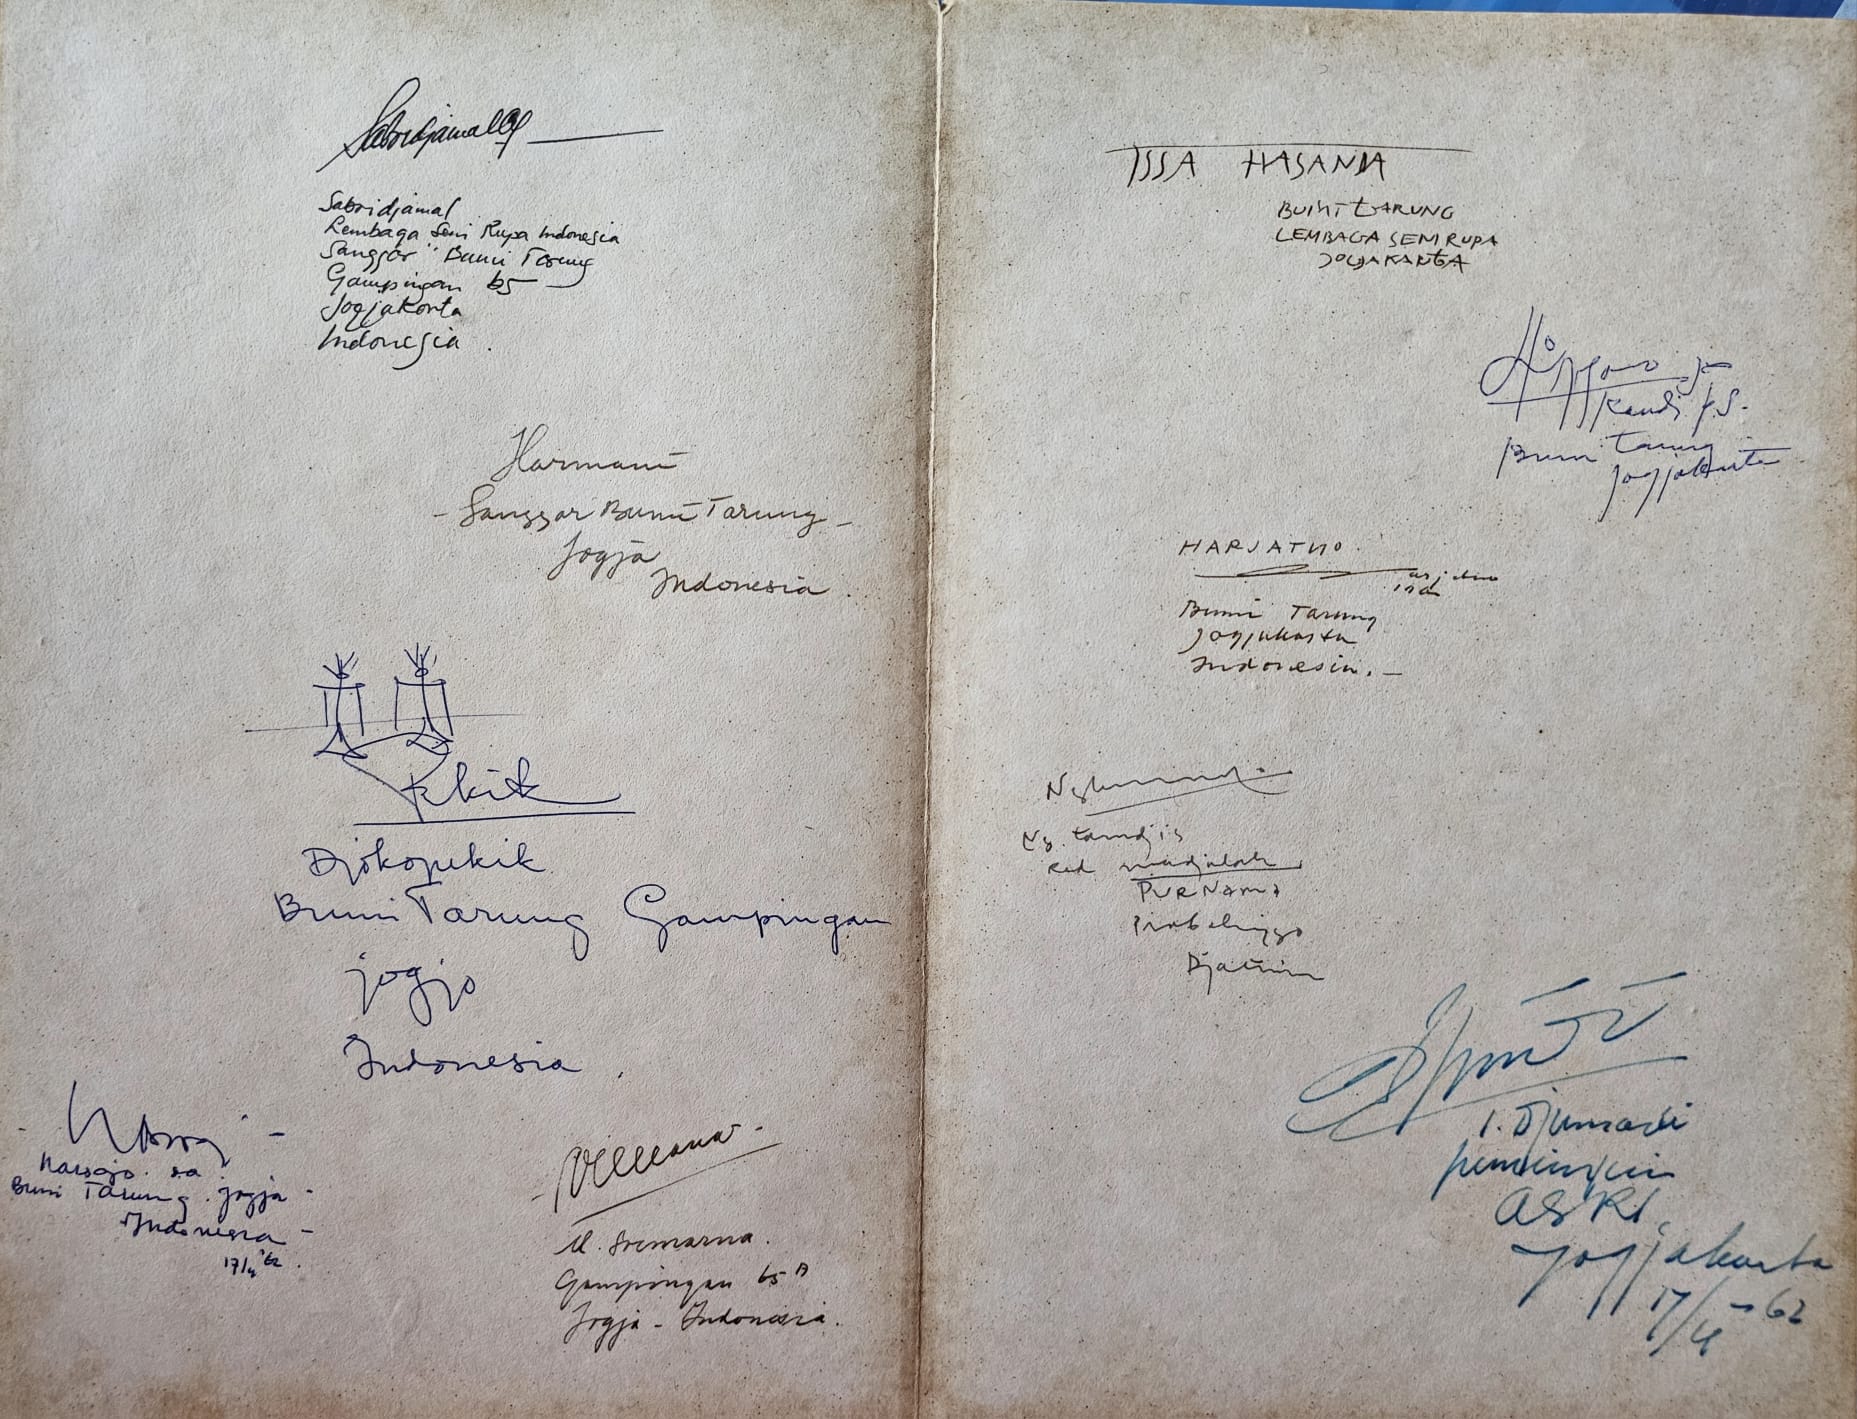 Sabridjamal
Sabridjamal
Lembaga Seni Rupa Indonesia
Sanggar "Bumi Tarung
Gampingan 65
Jogjakarta
Indonesia.
Harmani
- Sanggar Bumi Tarung -
Jogja
Indonesia.
Djokopekik
Bumi Tarung Gampingan
jogja
Indonesia.
Bumi Tarung. jogja -
Indonesia -
17/4 '62.
Gampingan 65A
Jogja - Indonesia.
ISSA HASANDA
BUMI TARUNG
LEMBAGA SENI RUPA
JOGJAKARTA
Bumi Tarung
Jogjakarta
HARJATNO.
Bumi Tarung
Jogjakarta
Indonesia. -
Ng. tarndjis
Red madjalah
PURNAMA
Probolinggo
Djatim
I. Djumadi
pemimpin
ASRI,
Jogjakarta
17/4 - 62